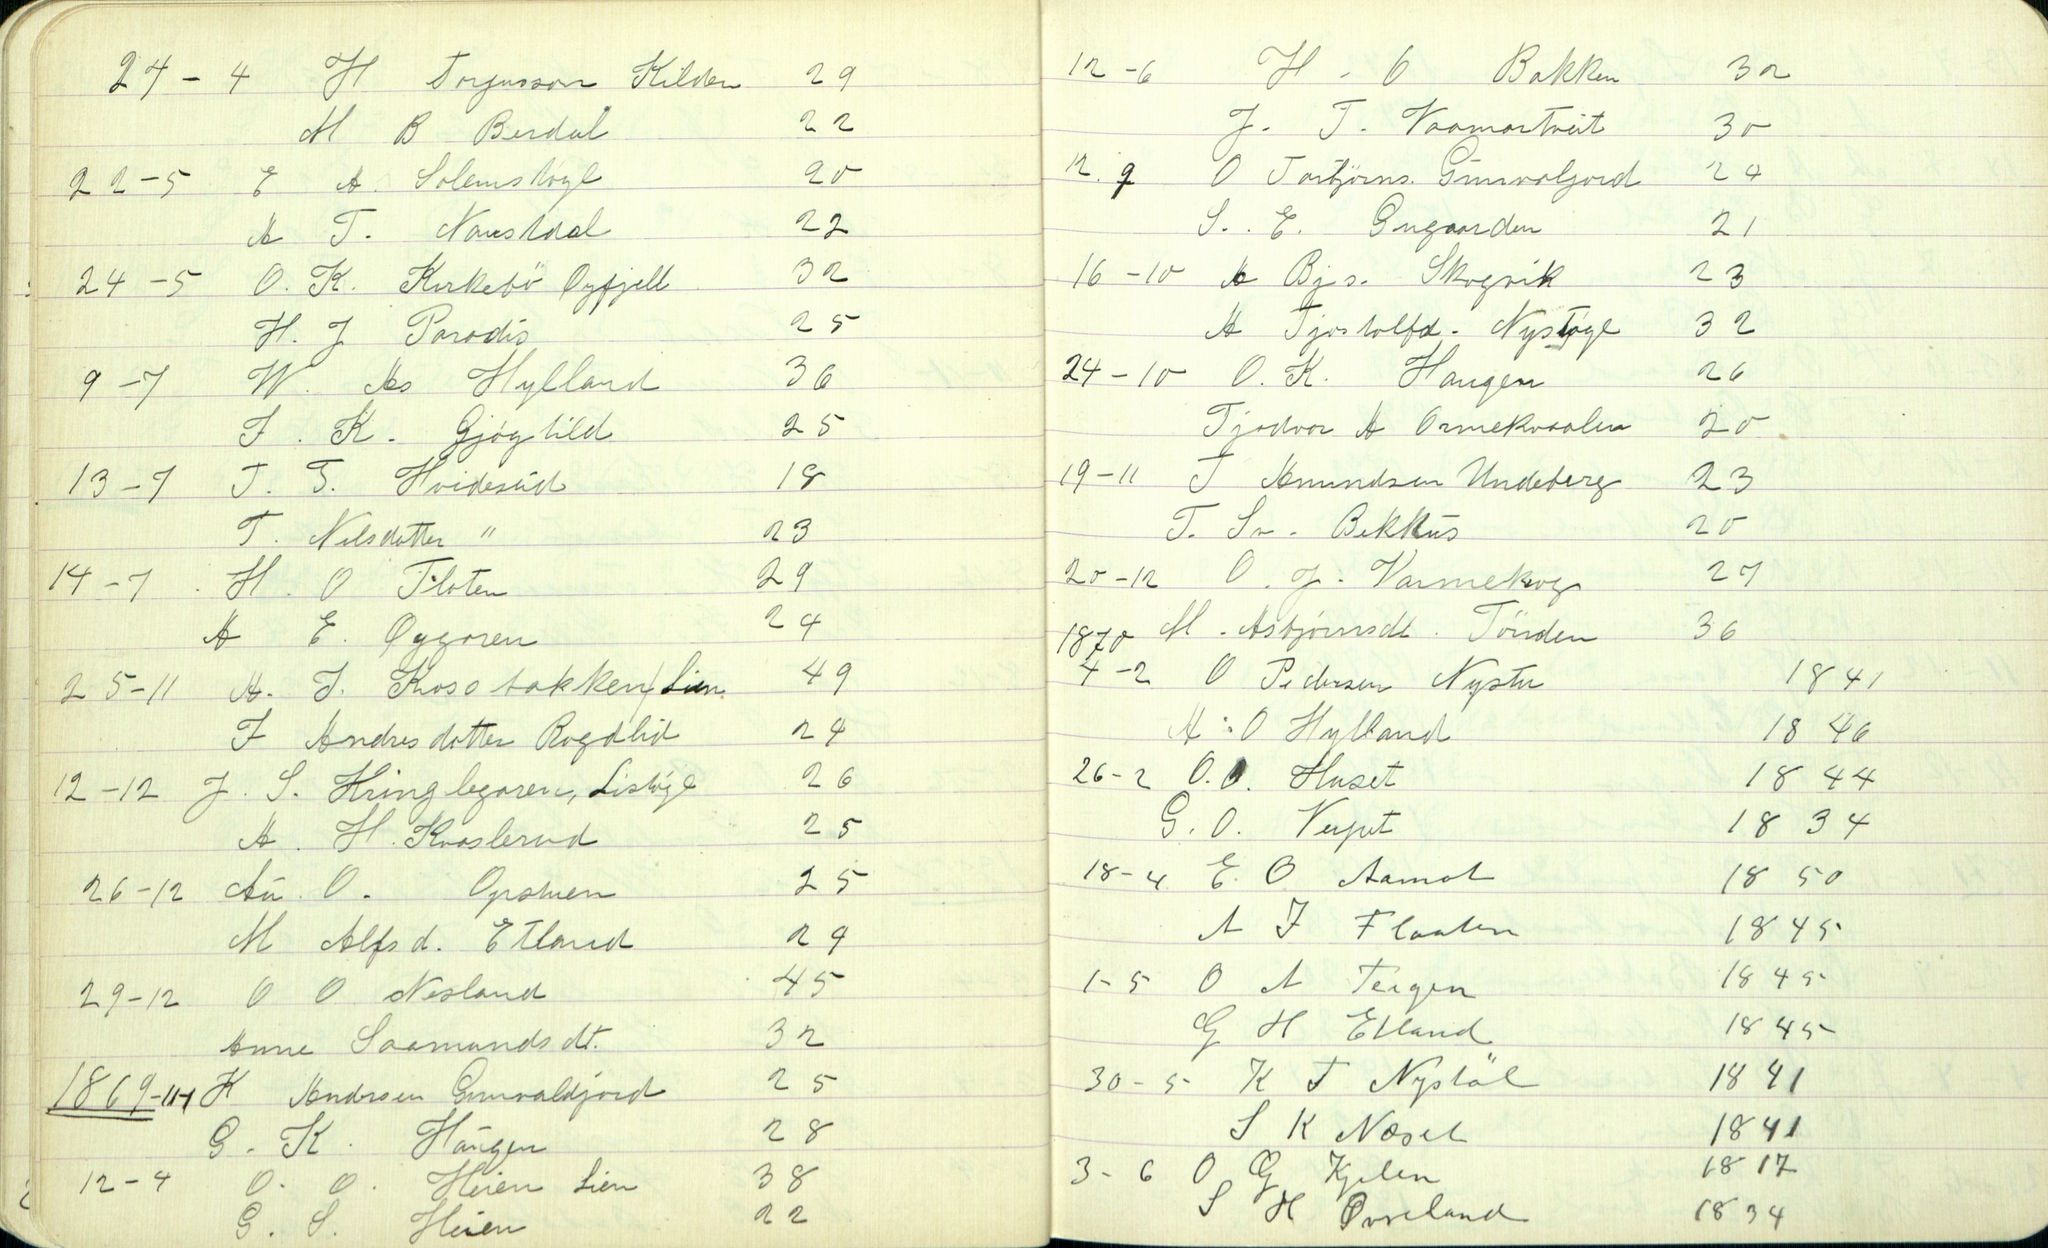 24 - 4 H Torgusson Kilden 29
M B Berdal 22
22-5 E A. Solemstøyl 20
A T. Naustdal 22
24-5 O. K. Kirkebø Øyfjell 32
H. J Paradis 25
9-7 W. As Hylland 36
T. K. Gjøglild 25
13-7 T. T. Hvideseid 18
T. Nilsdotter " 23
14-7 H. O Floten 29
A E. Øygaren 24
25-11 A. T. Kossbakken/Lien 49
T Andresdotter Rogdlid 24
12-12 J. S. Hringlegaren, Listøyl 26
A. H. Kvaslerud 25
26-12 Au. O. Opstuen 25
M Alfsd. Etland 29
29-12 O O Nesland 45
Anne Saamundsdt. 32
1869-11-1 K Andersen Grunvaldjord 25
G. K. Haugen 28
12-4 O. O. Heien Lien 38
G. S. Heien 22
12-6 H. O Bakken 32
J. T. Vaamartveit 30
12.9 O Torbjørns. Grunvaljord 24
S. E. Grugaarden 21
16-10 A Bjs. Skogvik 23
A Tjostolfd. Nystøyl 32
24-10 O. K. Haugen 26
Tjodvor A Ormekvaalen 20
19-11 T Amundsen Undeberg 23
T. Sv. Bekkus 20
20-12 O. J. Varmekog 27
M. Asbjørnsdt. Tønden 36
1870
4-2 O Pedersen Nystu 1841
A. O Hylland 1846
26-2 O. O. Huset 1844
G. O. Verput 1834
18-4 E. O Aamot 1850
A T Flaaten 1845
1-5 O A Teigen 1845
G H Etland 1845
30-5 K T Nystøl 1841
S K Næset 1841
3-6 O G Kjelen 1817
S H Øvreland 1834